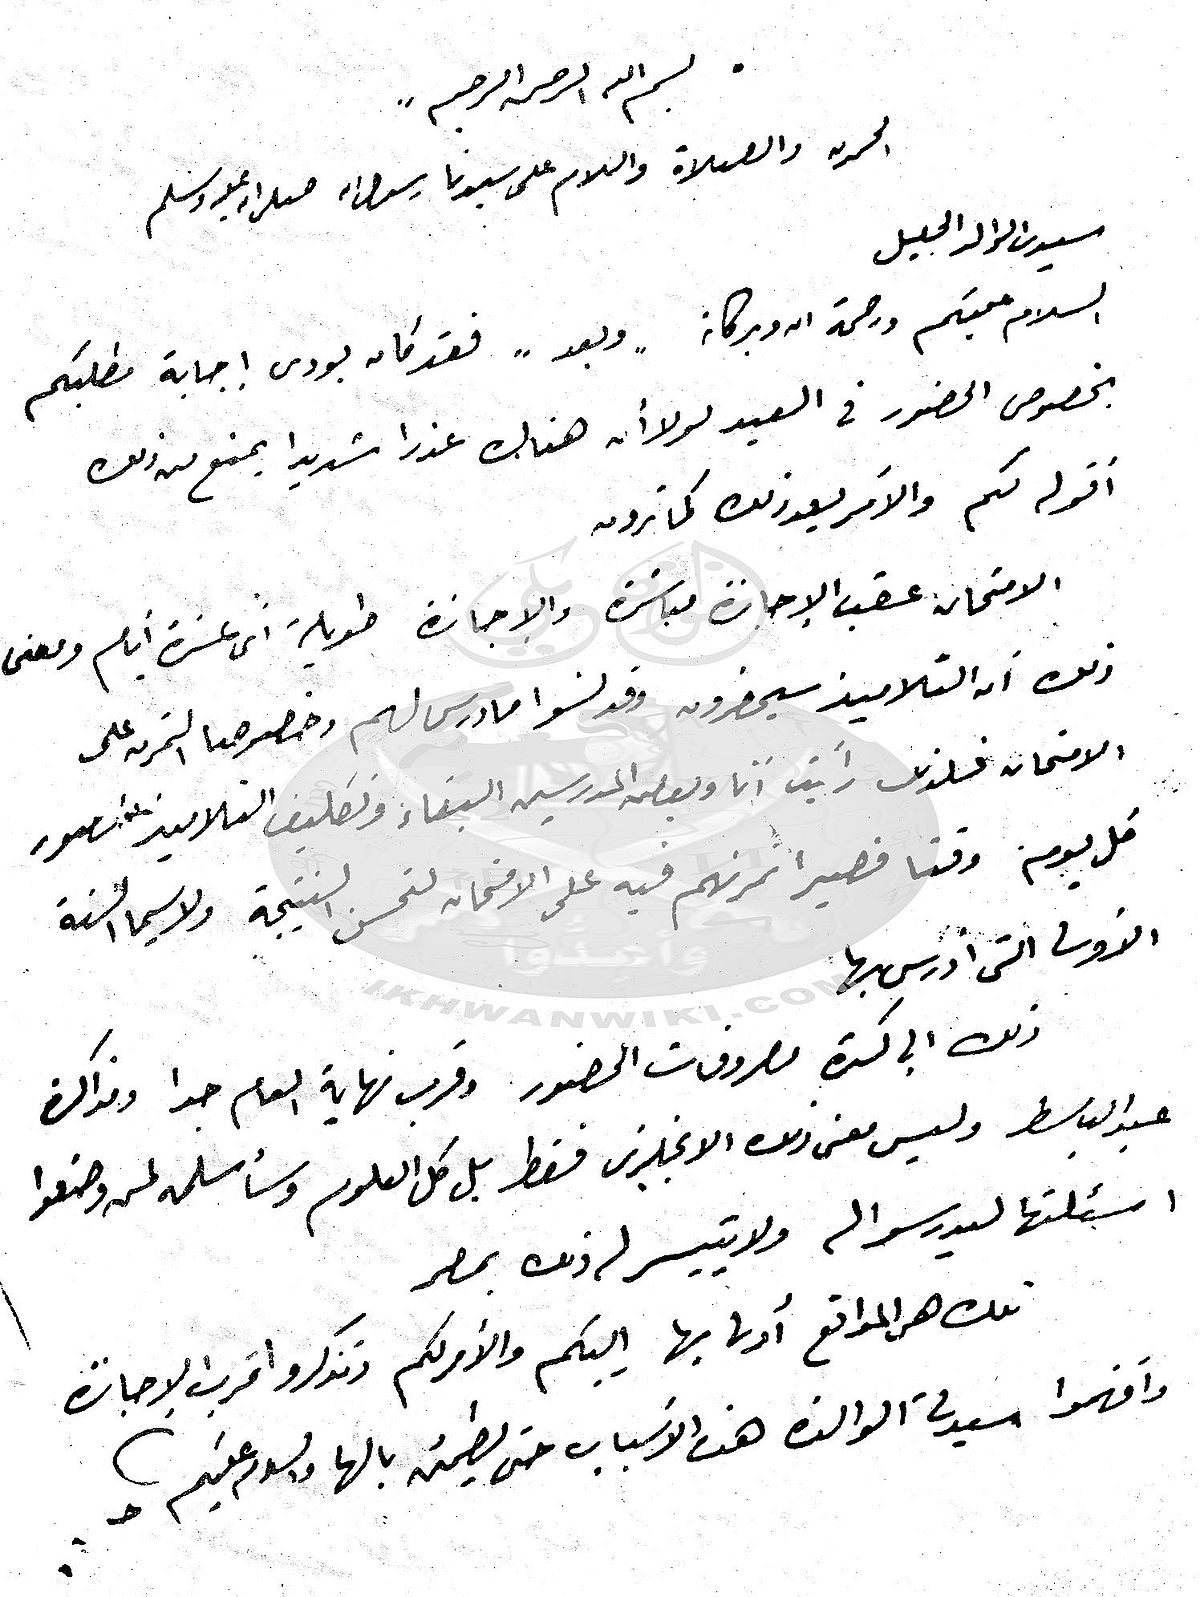 " بسم الله الرحمن الرحيم "
الحمد لله والصلاة والسلام على سيدنا رسول الله صلى الله عليه وسلم
سيدي الوالد الجليل
السلام عليكم ورحمة الله وبركاته " وبعد " فقد كان بودى إجابة مطلبكم
بخصوص الحضور فى العيد لولا أن هناك عذرا شديدا يمنع من ذلك
أقوله لكم والأمر بعد ذلك كما ترون
الامتحان عقب الإجازة مباشرة والإجازة طويلة أى عشرة أيام ومعنى
ذلك أن التلاميذ سيحضرون وقد نسوا ما درسناه لهم وخصوصا التمرن على
الامتحان فلذلك رأيت أنا وبعض المدرسين البقاء وتكليف التلاميذ الحضور
كل يوم وقتا قصيرا نمرنهم فيه على الامتحان لتحسن النتيجة ولاسيما السنة
الأولى التى أدرس بها
ذلك الى كثرة مصروفات الحضور وقرب نهاية العام جدا ومذاكرة
عبد الباسط وليس معنى ذلك الانجليزى فقط بل كل العلوم وسأسلمه لمن وضعوا
اسئلتها ليدرسوا له ولا يتيسر له ذلك بمصر
تلك هى الموانع أدلى بها إليكم والأمر لكم وتذكروا قرب الإجازة
وأفهموا سيدتى الوالدة هذه الأسباب حتى يطمئن بالها والسلام عليكم
IKHWANWIKI.COM
وأعدوا